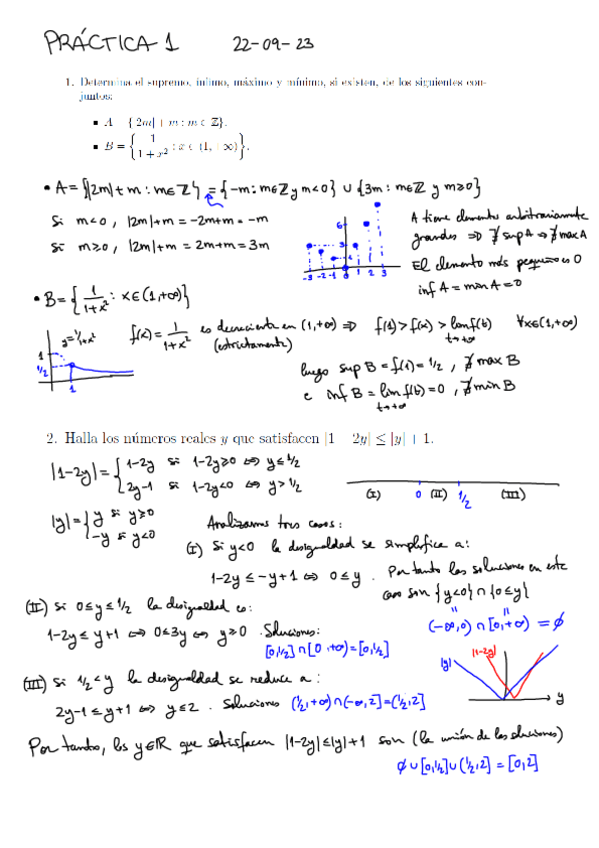 PRÁCTICA 1 22-09-23
1. Determina el supremo, ínfimo, máximo y mínimo, si existen, de los siguientes con-
juntos:
▪ A = {|2m| + m : m ∈ ℤ}.
▪ B = {1/(1+x²) : x ∈ (1, +∞)}.
• A = {|2m|+m : m∈ℤ} = {-m : m∈ℤ y m<0} ∪ {3m : m∈ℤ y m≥0}
Si m<0, |2m|+m = -2m+m = -m
Si m≥0, |2m|+m = 2m+m = 3m
6
3
-3 -2 -1 0 1 2 3
A tiene elementos arbitrariamente
grandes ⇒ ∄ sup A ⇒ ∄ max A
El elemento más pequeño es 0
inf A = min A = 0
• B = {1/(1+x²) : x∈(1,+∞)}
y=1/1+x²
1
1/2
1
f(x) = 1/(1+x²) es decreciente en (1,+∞) ⇒ f(1) > f(x) > lim f(t) ∀x∈(1,+∞)
(estrictamente) t→+∞
luego sup B = f(1) = 1/2, ∄ max B
e inf B = lim f(t) = 0, ∄ min B
t→+∞
2. Halla los números reales y que satisfacen |1 − 2y| ≤ |y| + 1.
|1-2y| = { 1-2y si 1-2y≥0 ⇔ y≤1/2
2y-1 si 1-2y<0 ⇔ y>1/2
(I) 0 (II) 1/2 (III)
|y| = { y si y≥0
-y si y<0
Analizamos tres casos:
(I) Si y<0 la desigualdad se simplifica a:
1-2y ≤ -y+1 ⇔ 0≤y. Por tanto las soluciones en este
caso son {y<0} ∩ {0≤y}
" "
(-∞,0) ∩ [0,+∞) = ∅
(II) Si 0≤y≤1/2 la desigualdad es:
1-2y ≤ y+1 ⇔ 0≤3y ⇔ y≥0. Soluciones:
[0,1/2] ∩ [0,+∞) = [0,1/2]
|y| |1-2y|
y
(III) Si 1/2<y la desigualdad se reduce a:
2y-1 ≤ y+1 ⇔ y≤2. Soluciones (1/2,+∞)∩(-∞,2] = (1/2,2]
Por tanto, los y∈ℝ que satisfacen |1-2y|≤|y|+1 son (la unión de las soluciones)
∅ ∪ [0,1/2] ∪ (1/2,2] = [0,2]